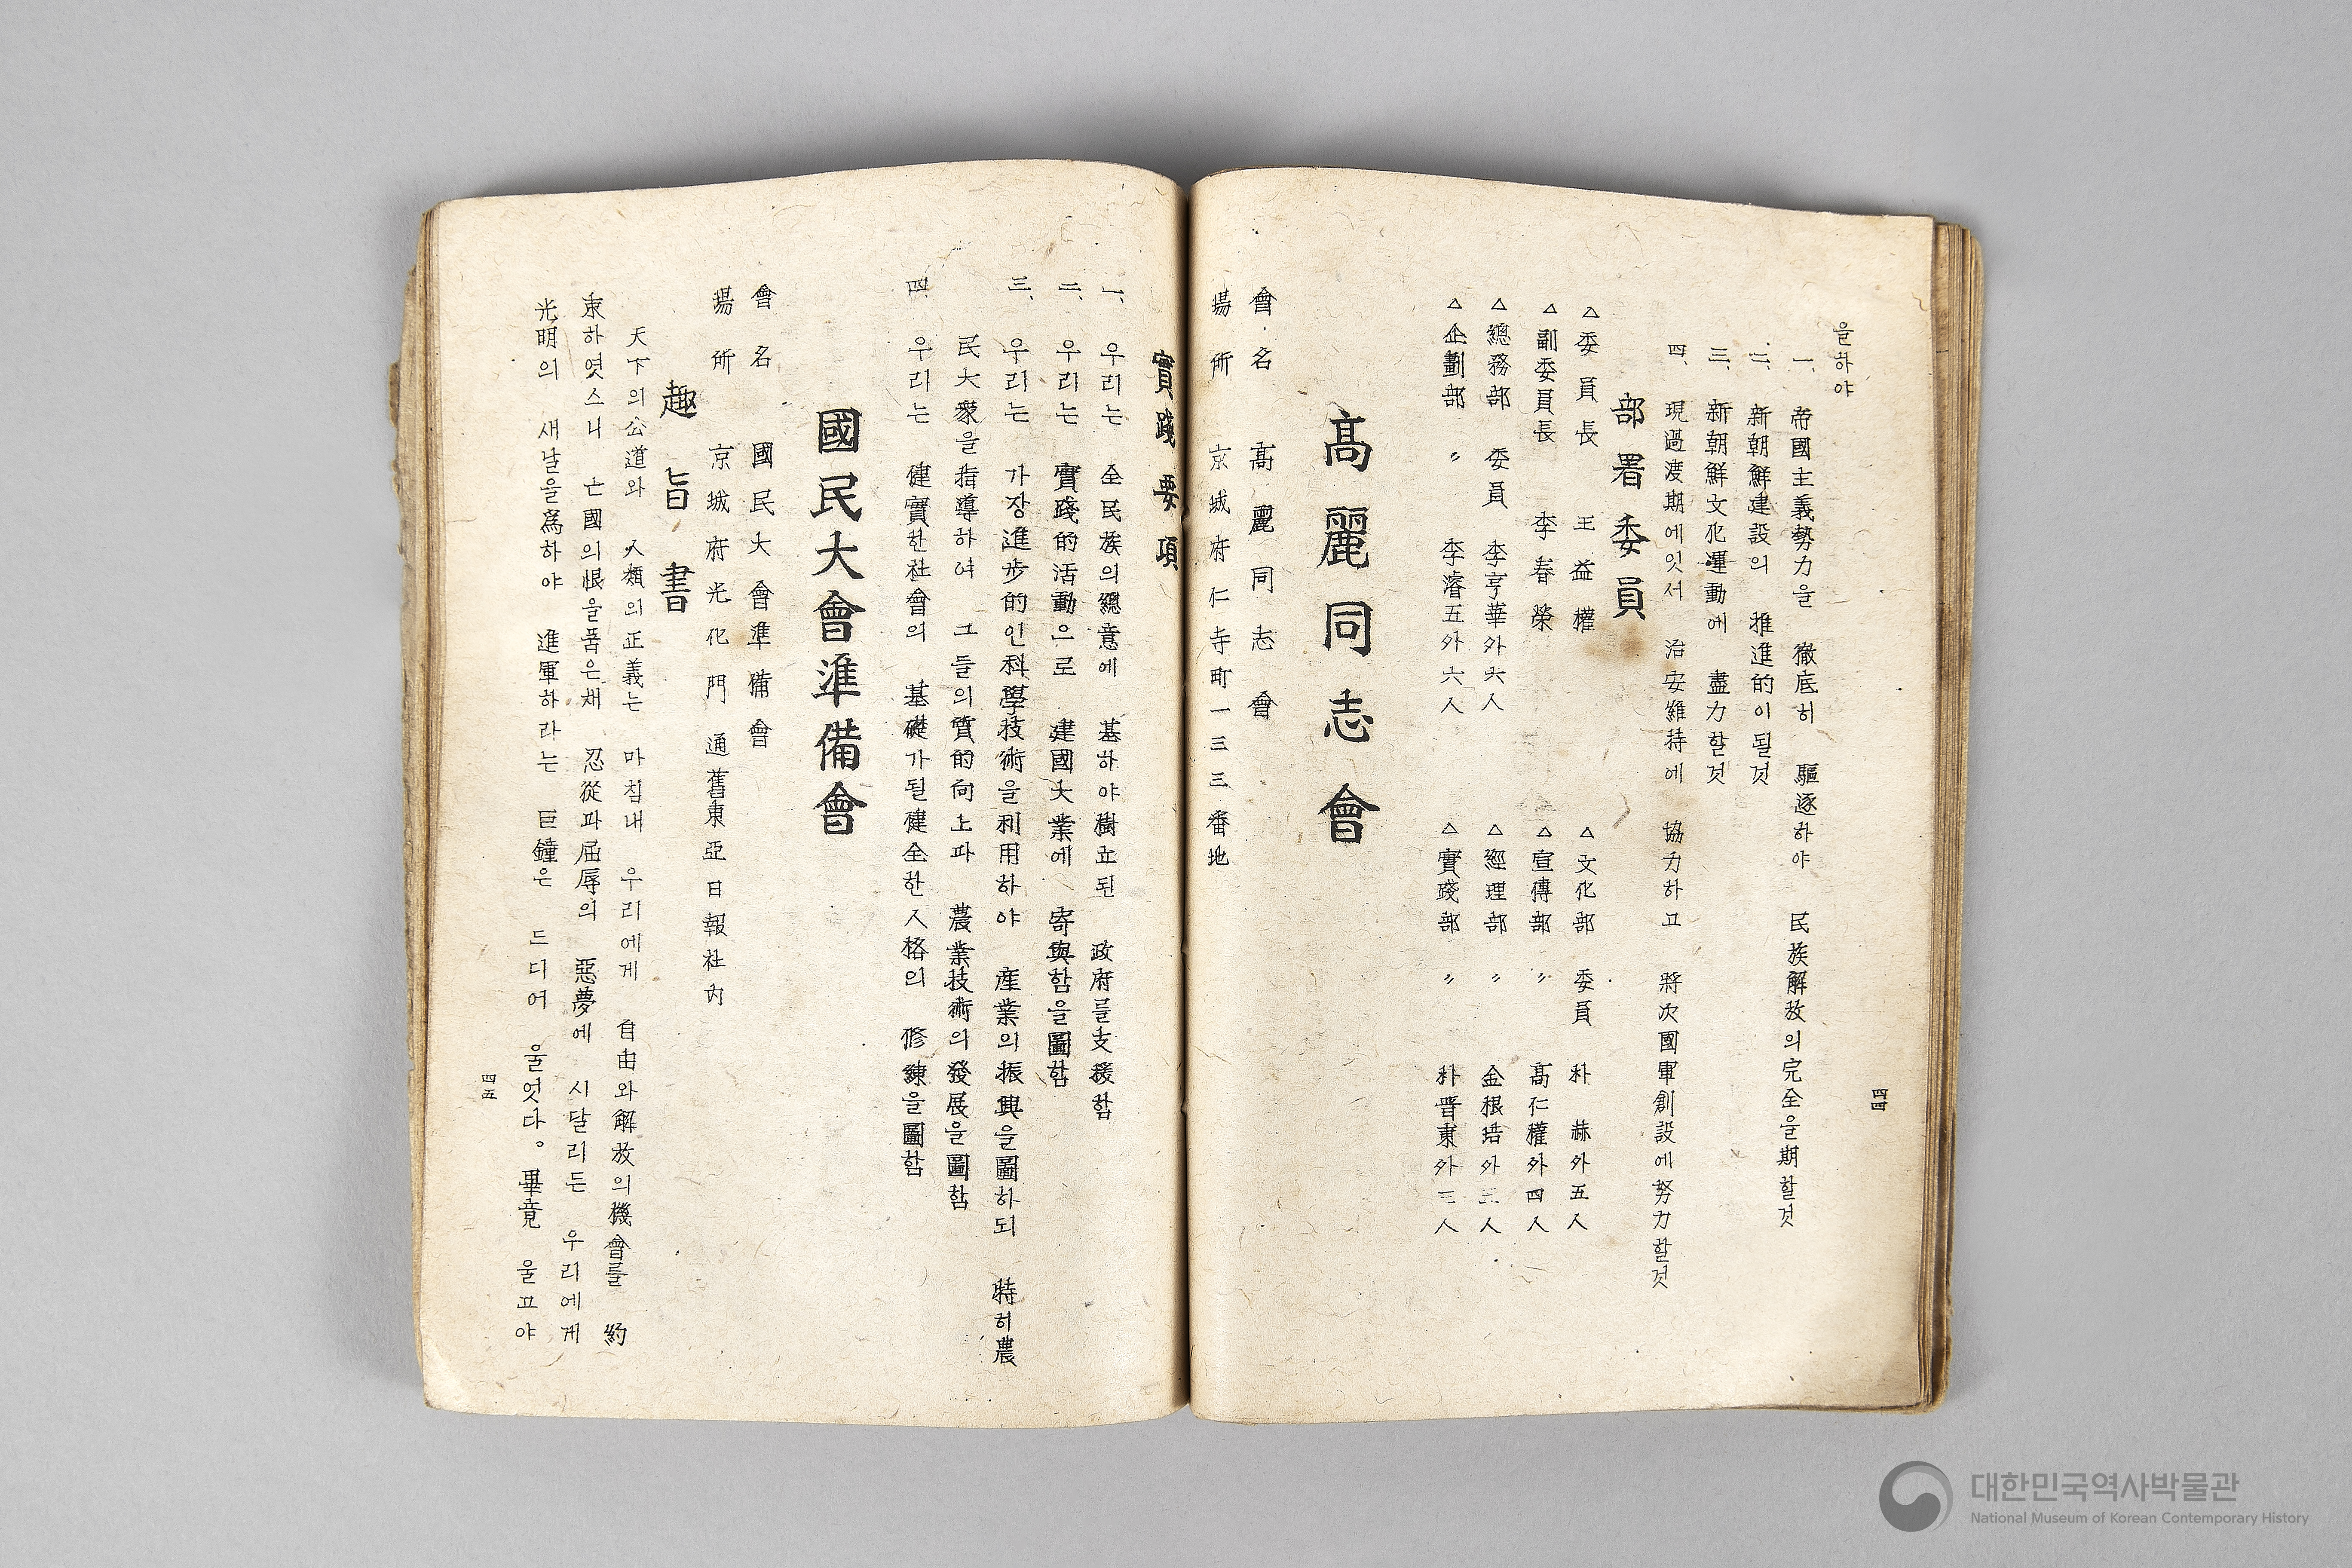 을하야
一、帝國主義勢力을 徹底히 驅逐하야 民族解放의完全을期할것
二、新朝鮮建設의 推進的이될것
三、新朝鮮文化運動에 盡力할것
四、現過渡期에잇서 治安維持에 協力하고 將次國軍創設에努力할것
部署委員
△委員長 王益權 △文化部 委員 朴赫外五人
△副委員長 李春榮 △宣傳部 〃 高仁權外四人
△總務部 委員 李亨華外六人 △經理部 〃 金根培外三人
△企劃部 〃 李濬五外六人 △實踐部 〃 朴晋東外二人
高麗同志會
會名 高麗同志會
場所 京城府仁寺町一三三番地
四四
實踐要項
一、우리는 全民族의總意에 基하야樹立된 政府를支援함
二、우리는 實踐的活動으로 建國大業에 寄與함을圖함
三、우리는 가장進步的인科學技術을利用하야 産業의振興을圖하되 特히農
民大衆을指導하여 그들의質的向上과 農業技術의發展을圖함
四、우리는 健實한社會의 基礎가될健全한人格의 修練을圖함
國民大會準備會
會名 國民大會準備會
場所 京城府光化門通舊東亞日報社內
趣旨書
天下의公道와 人類의正義는 마침내 우리에게 自由와解放의機會를 約
束하엿스니 亡國의恨을품은채 忍從과屈辱의 惡夢에 시달리든 우리에게
光明의 새날을爲하야 進軍하라는 巨鐘은 드디어 울엇다。畢竟 울고야
四五
대한민국역사박물관
National Museum of Korean Contemporary History